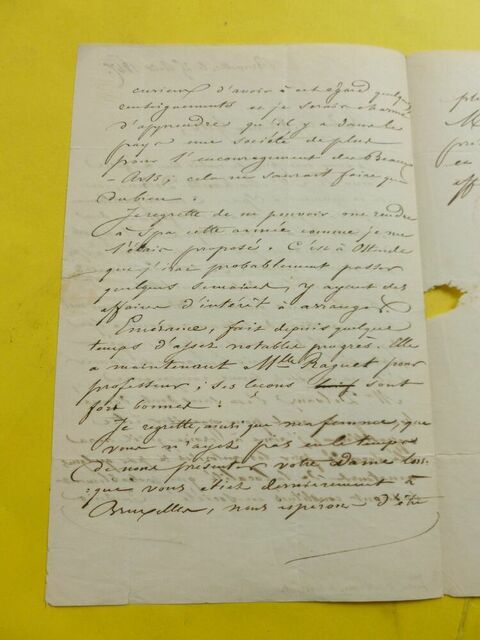 curieux d'avoir à cet égard quelques
renseignements et je serais charmé
d'apprendre qu'il y a dans le
pays une société de plus
pour l'encouragement des beaux
-Arts; cela ne saurait faire que
du bien.
Je regrette de ne pouvoir me rendre
à Spa cette année comme je me
l'étais proposé. C'est à Ostende
que j'irai probablement passer
quelques semaines, y ayant des
affaires d'intérêt à arranger.
Emérance, fait depuis quelque
temps d'assez notables progrès. Elle
a maintenant Mlle Raquet pour
professeur; ses leçons sont
fort bonnes.
Je regrette, ainsi que ma femme, que
vous n'ayez pas eu le temps
de nous présenter votre Dame lors-
que vous étiez dernièrement à
Bruxelles, nous espérons d'être